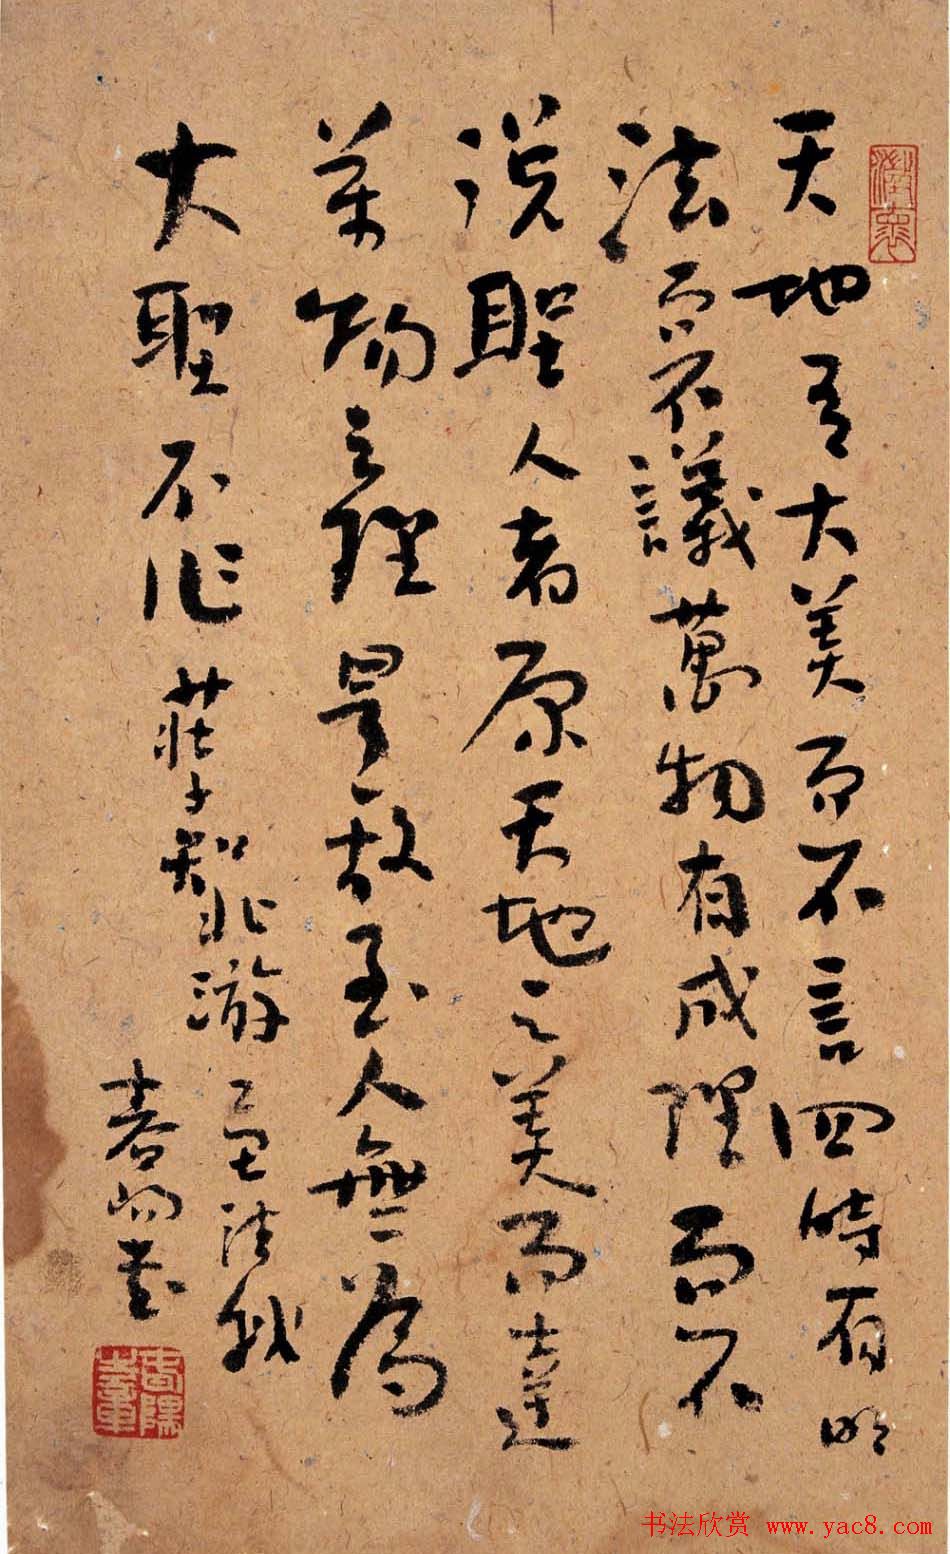 天地有大美而不言四時有明
法而不議萬物有成理而不
説聖人者原天地之美而達
萬物之理是故至人無為
大聖不作
莊子知北游
书法欣赏 www.yac8.com